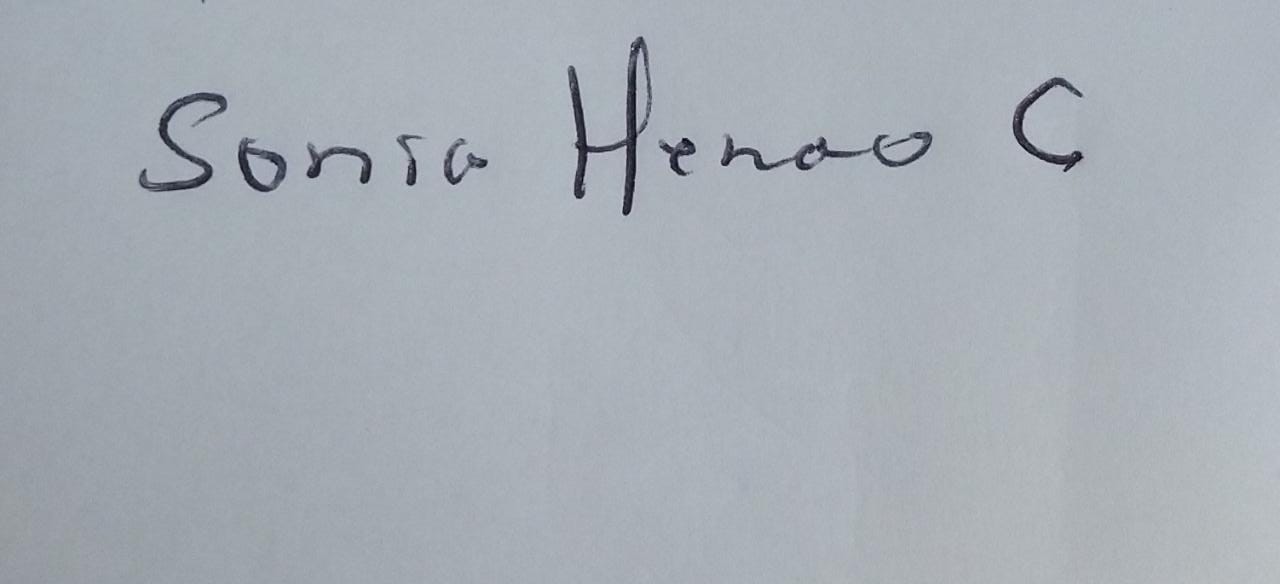 Sonia Henao C